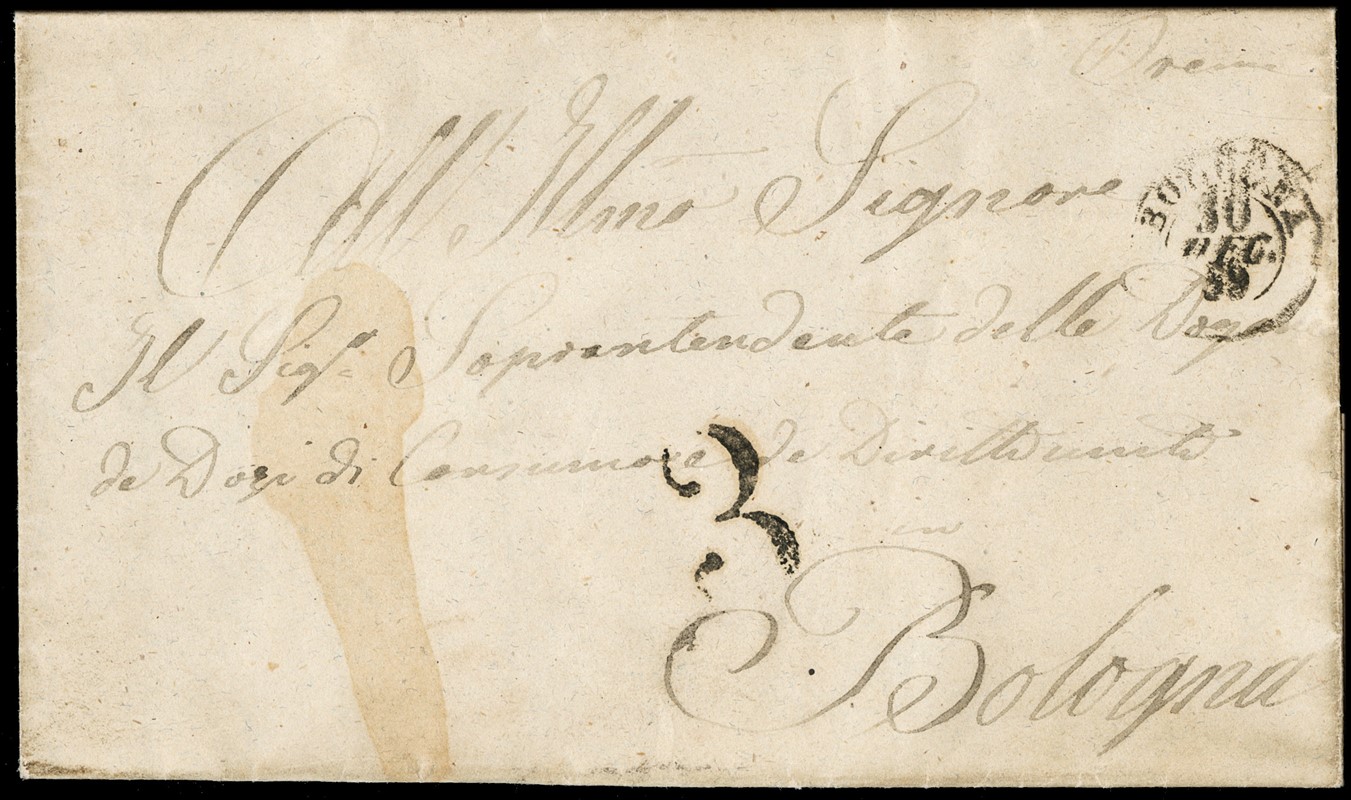 All' Illmo Signore
BOLOGNA
10
DEC.
59
Il Sigr. Soprantendente delle Dogane
de Dazi di Consumo e de Diritti uniti
3
in
Bologna